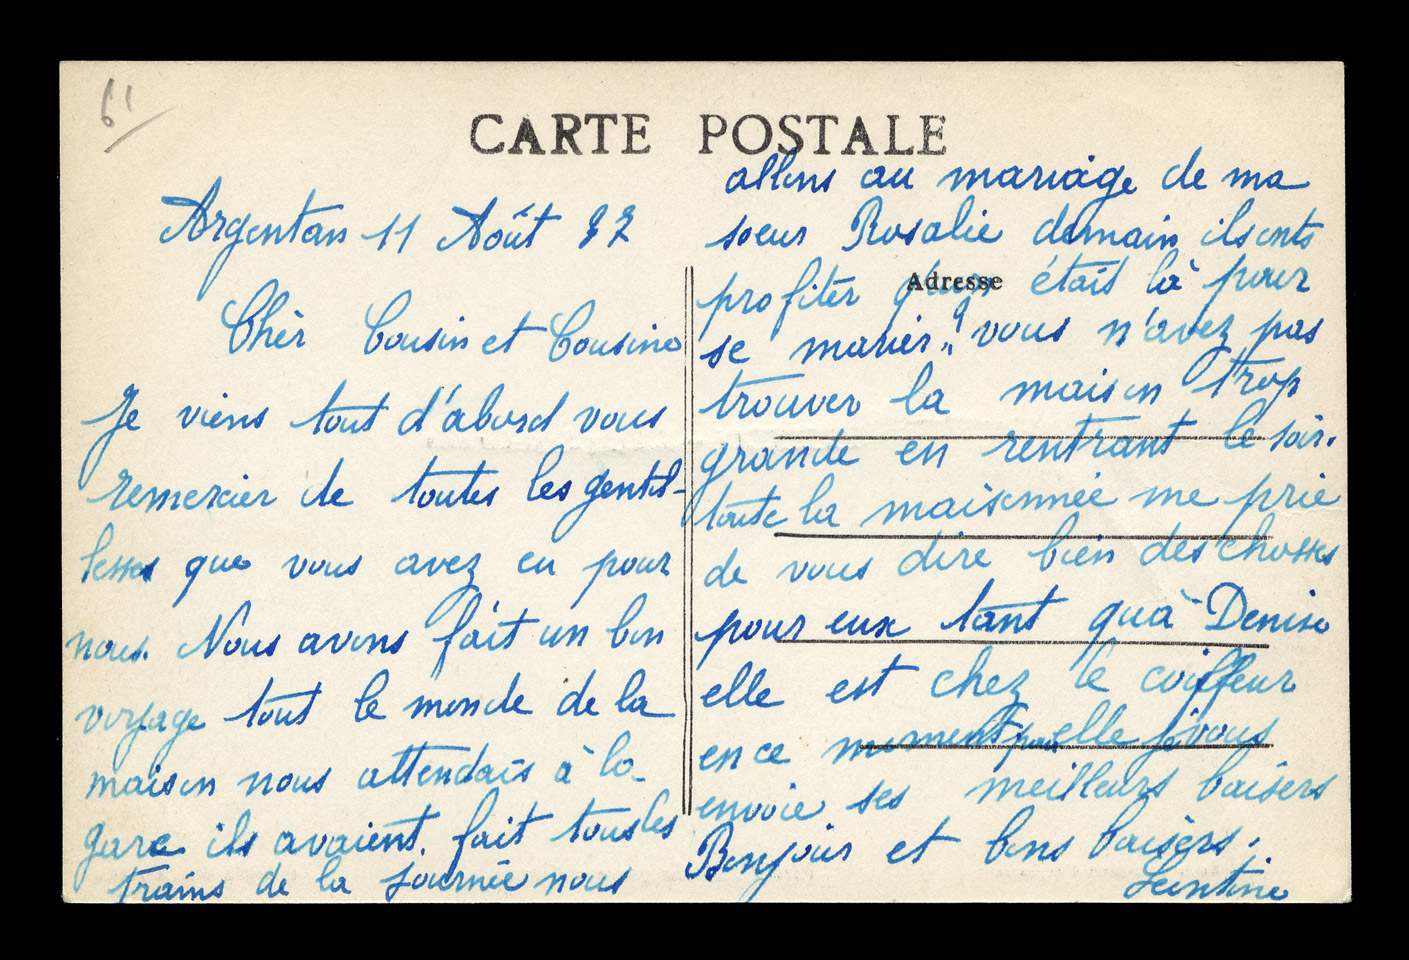 61
CARTE POSTALE
Argentan 11 Août 37
Chèr Cousin et Cousine
Je viens tout d'abord vous
remercier de toutes les gentil-
lesses que vous avez eu pour
nous. Nous avons fait un bon
voyage tout le monde de la
maison nous attendais à la
gare ils avaient. fait tous les
trains de la journée nous
allons au mariage de ma
soeur Rosalie demain ils onts
profiter était là pour
Adresse
se marier. vous n'avez pas
trouver la maison trop
grande en rentrant le soir.
toute la maisonnée me prie
de vous dire bien des chosses
pour eux tant quà Denise
elle est chez le coiffeur
en ce moment pour elle je vous
envoie ses meilleurs baisers
Bonjour et bons baisers.